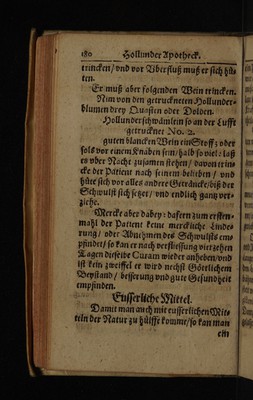 180 Hollunder Apotheck.
trincken/ vnd vor Vberfluß muß er sich hü-
ten.
Er muß aber folgenden Wein trincken.
Nim von den getruckneten Hollunder-
blumen drey Quasten oder Dolden.
Hollunderschwämlein so an der Lufft
getrucknet No. 2.
guten blancken Wein ein Stoff; oder
so es vor einem Knaben sein/ halb so viel: Laß
es vber Nacht zusamen stehen/ davon trin-
cke der Patient nach seinem belieben/ vnd
hüte sich vor alles andere Geträncke/ biß der
Schwulst sich setzet/ vnd endlich gantz ver-
ziehe.
Mercke aber dabey: dafern zum ersten-
mahl der Patient keine merckliche Linde-
rung/ oder Abnehmen des Schwulsts em-
pfindet/ so kan er nach verfliessung vierzehen
Tagen dieselbe Curam wieder anheben/ vnd
ist kein zweiffel er wird nechst Göttlichem
Beystand/ besserung vnd gute Gesundheit
empfinden.
Eusserliche Mittel.
Damit man auch mit eusserlichen Mit-
teln der Natur zu hülffe komme/ so kan man
ein